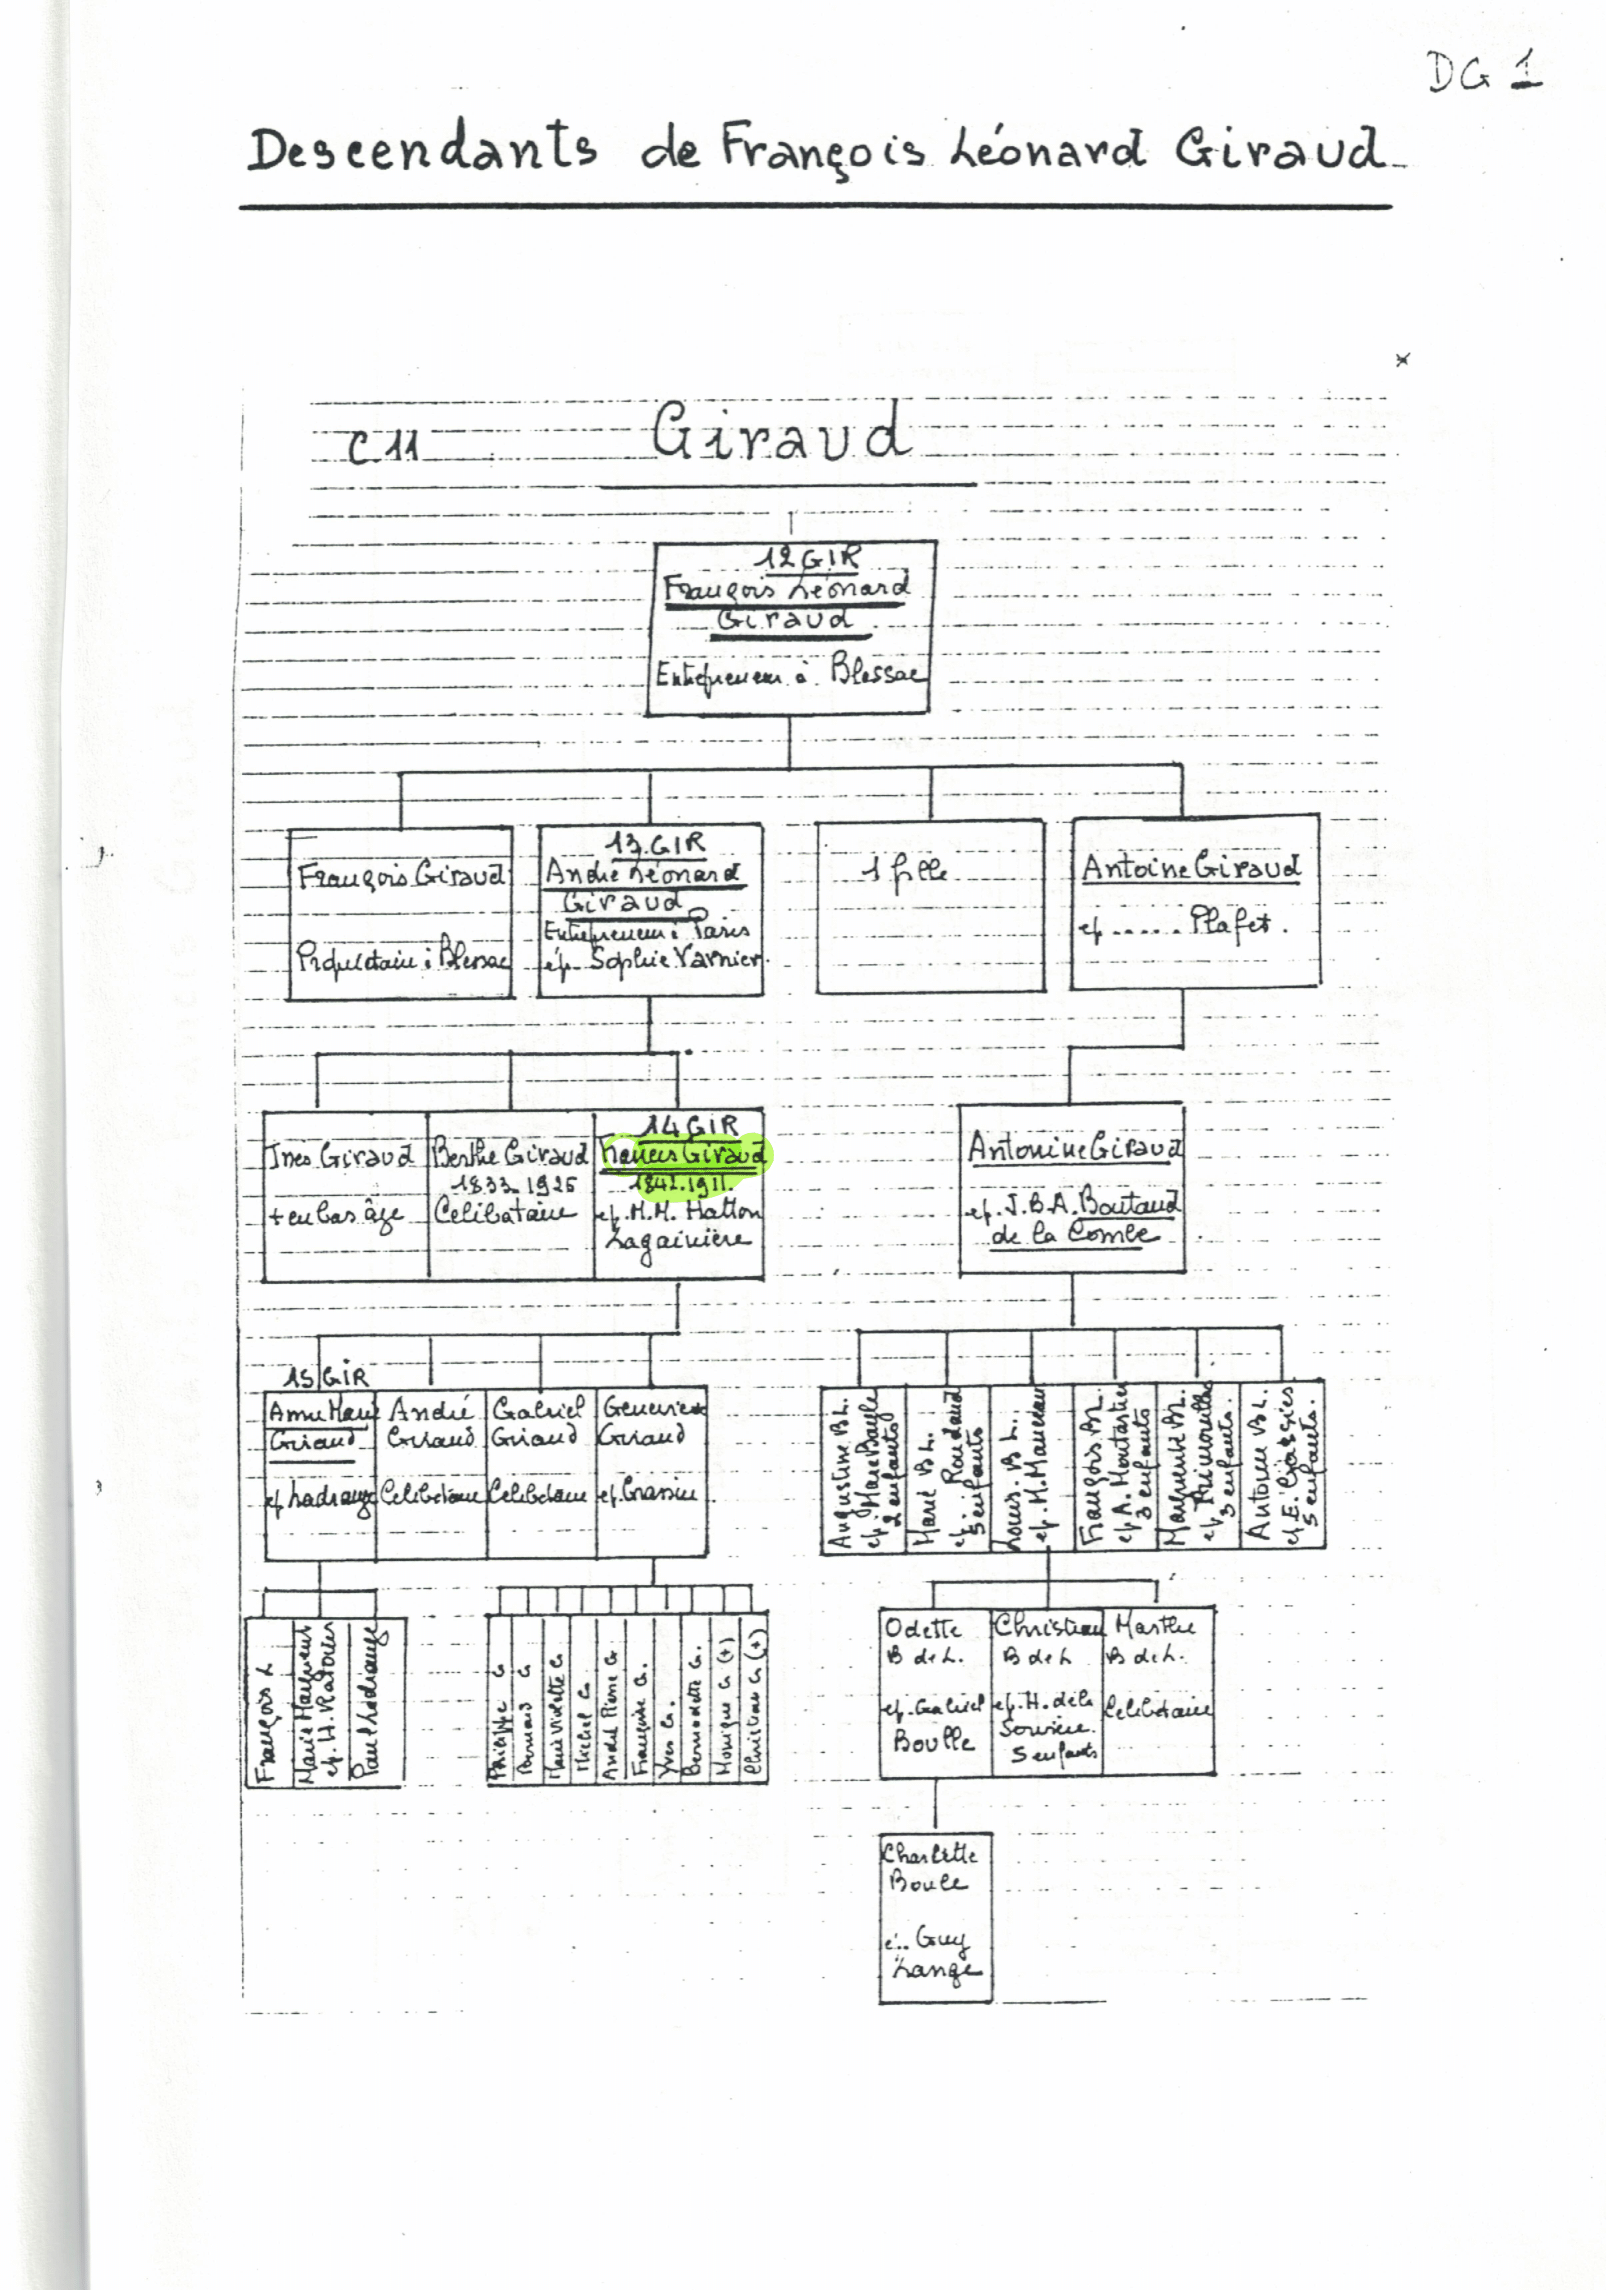 DG 1
Descendants de François Léonard Giraud
C 11
Giraud
12 GIR
François Léonard
Giraud
Entrepreneur à Blessac
François Giraud
Propriétaire à Blessac
13.GIR
André Léonard
Giraud
Entrepreneur à Paris
ép. Sophie Varnier.
1 fille
Antoine Giraud
ép ...... Plafet.
Ines Giraud
+ en bas âge
Berthe Giraud
1833_1925
Célibataire
14 GIR
Francis Giraud
1842.1911.
ép. M.M. Hatton
Lagainière
Antonine Giraud
ép. J.B.A. Boutaud
de la Combe
15 GIR
Anne Marie
Giraud
ép Ladrange
André
Giraud
Célibataire
Gabriel
Giraud
Célibataire
Geneviève
Giraud
ép. Grassin
Augustine B L.
ép. Marc Bayle
2 enfants
Marie B L.
ép. Roudaud
5 enfants
Louis. B L.
ép. M.
François BL.
ép A.
3 enfants
Marguerite BL.
ép
3 enfants.
Antoine B L.
ép E.
5 enfants.
François L
Marie Marguerite
ép. H.
Paul Ladrange
Philippe G
Bernard G
Marie Violette G.
Michel G.
André Pierre G
Françoise G.
Yves G.
Bernadette G.
Monique G (+)
Christian G (+)
Odette
B de L.
ép. Gabriel
Boulle
Christian
B de L
ép. H. de la
5 enfants
Marthe
B de L.
Célibataire
Charlette
Boulle
é.. Guy
Lange